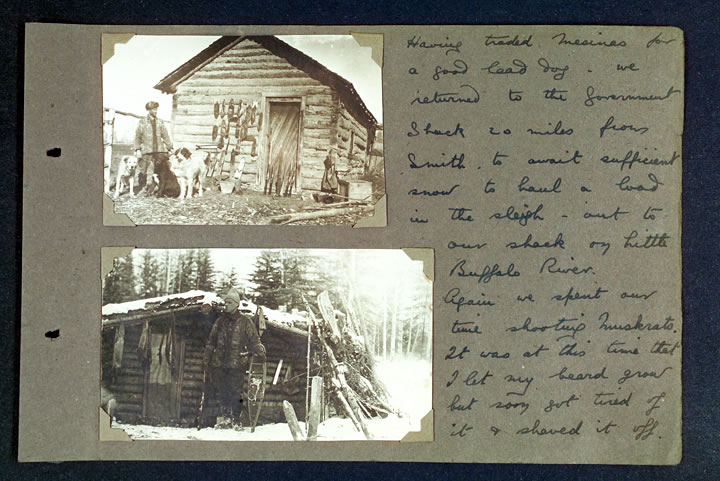 Having traded Mesinas for
a good lead dog - we
returned to the Government
Shack 20 miles from
Smith, to await sufficient
snow to haul a load
in the sleigh - out to
our shack on Little
Buffalo River.
Again we spent our
time shooting Muskrats.
It was at this time that
I let my beard grow
but soon got tired of
it & shaved it off.